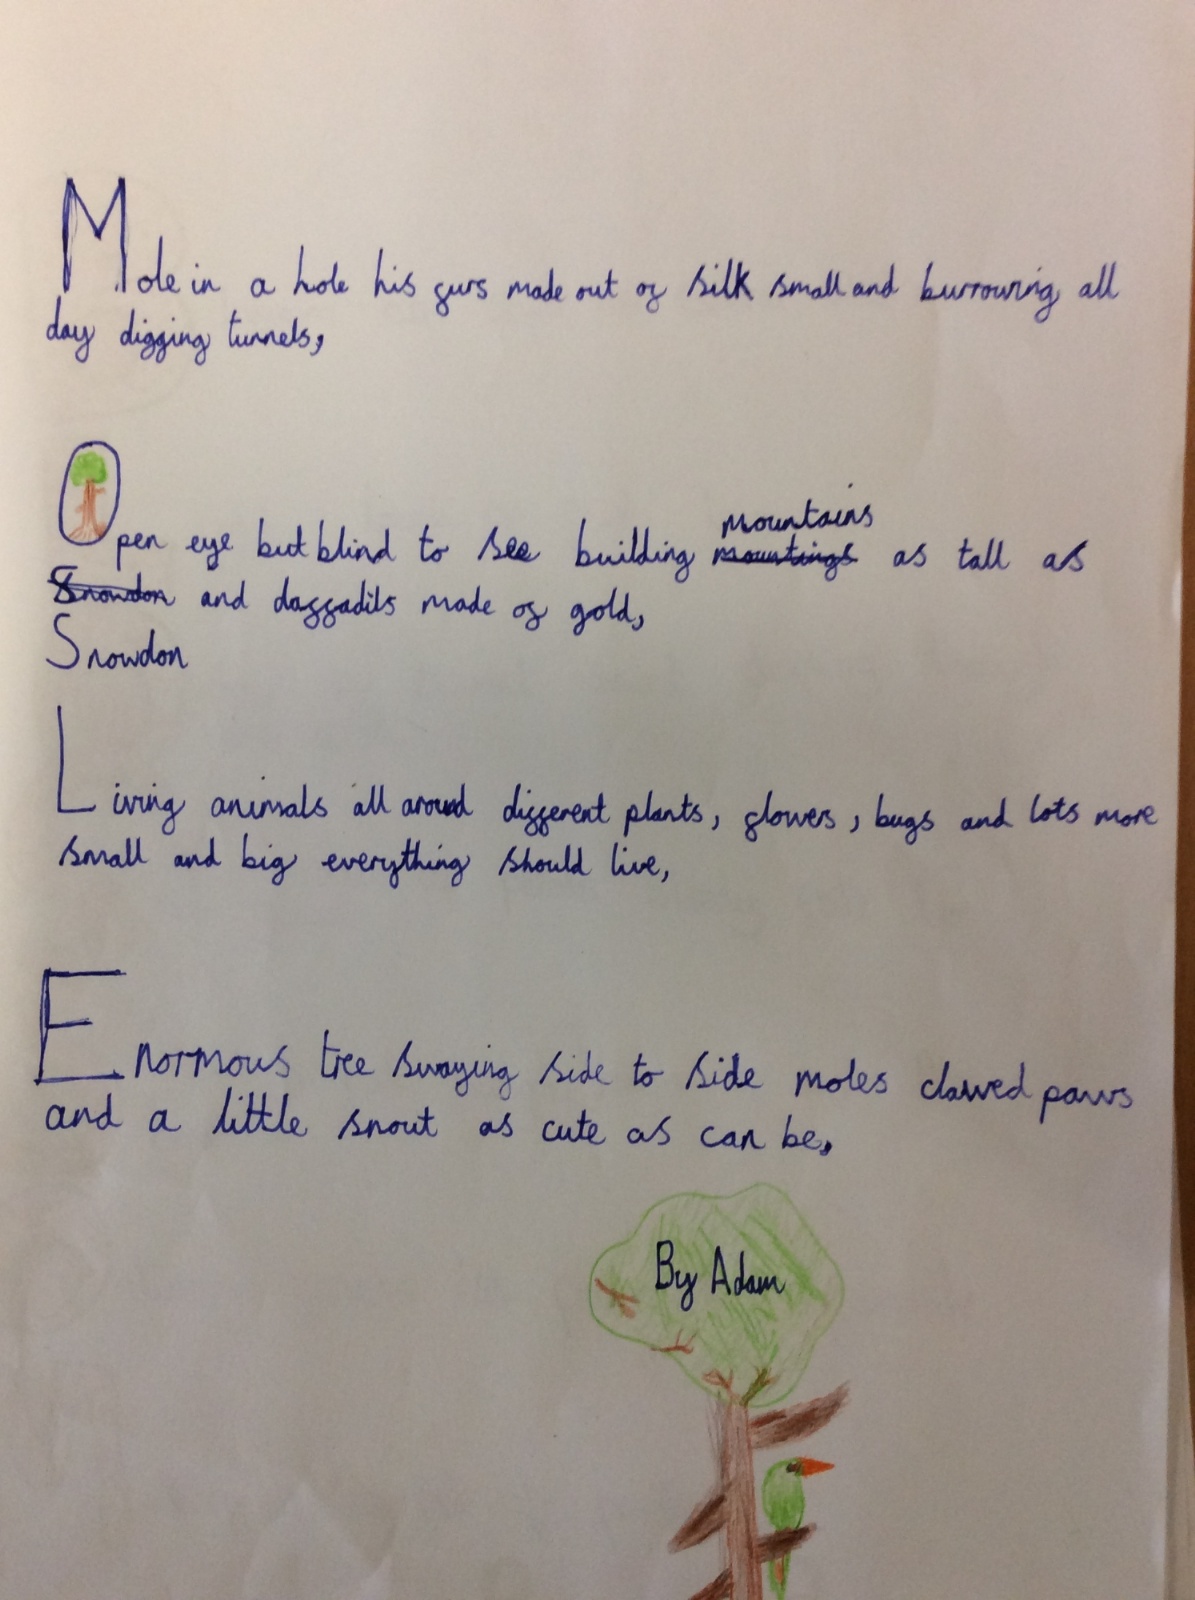 Mole in a hole his furs made out of silk small and burrowing all
day digging tunnels,
mountains
Open eye but blind to see building mountings as tall as
Snowdon and daffadils made of gold,
Snowdon
Living animals all around different plants, flowers, bugs and lots more
small and big everything should live,
Enormous tree swaying side to side moles clawed paws
and a little snout as cute as can be,
By Adam